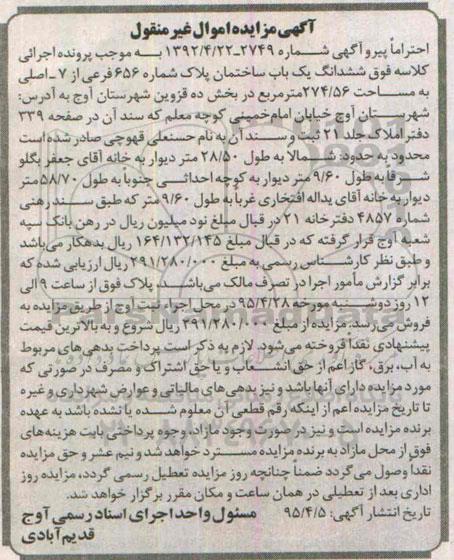 آگهی مزایده اموال غیر منقول
احتراماً پیرو آگهی شماره ۲۷۴۹-۱۳۹۲/۴/۲۲ به موجب پرونده اجرائی
کلاسه فوق ششدانگ یک باب ساختمان پلاک شماره ۶۵۶ فرعی از ۷-اصلی
به مساحت ۲۷۴/۵۶ مترمربع در بخش ده قزوین شهرستان آوج به آدرس:
شهرستان آوج خیابان امام خمینی کوچه معلم که سند آن در صفحه ۳۳۹
دفتر املاک جلد ۲۱ ثبت و سند آن به نام حسنعلی قهوچی صادر شده است
محدود به حدود: شمالا به طول ۲۸/۵۰ متر دیوار به خانه آقای جعفر بگلو
شرقا به طول ۹/۶۰ متر دیوار به کوچه احداثی جنوباً به طول ۵۸/۷۰ متر
دیوار به خانه آقای یداله افتخاری غرباً به طول ۹/۶۰ متر که طبق سند رهنی
شماره ۴۸۵۷ دفترخانه ۲۱ در قبال مبلغ نود میلیون ریال در رهن بانک سپه
شعبه آوج قرار گرفته که در قبال مبلغ ۱۶۴/۱۳۲/۱۴۵ ریال بدهکار می‌باشد
و طبق نظر کارشناس رسمی به مبلغ ۲۹۱/۲۸۰/۰۰۰ ریال ارزیابی شده که
برابر گزارش مأمور اجرا در تصرف مالک می‌باشند، پلاک فوق از ساعت ۹ الی
۱۲ روز دوشنبه مورخه ۹۵/۴/۲۸ در محل اجراء ثبت آوج از طریق مزایده به
فروش می‌رسد. مزایده از مبلغ ۳۹۱/۲۸۰/۰۰۰ ریال شروع و به بالاترین قیمت
پیشنهادی نقدا فروخته می‌شود. لازم به ذکر است پرداخت بدهی‌های مربوط
به آب، برق، گاز اعم از حق انشعاب و یا حق اشتراک و مصرف در صورتی که
مورد مزایده دارای آنها باشد و نیز بدهی های مالیاتی و عوارض شهرداری و غیره
تا تاریخ مزایده اعم از اینکه رقم قطعی آن معلوم شده یا نشده باشد به عهده
برنده مزایده است و نیز در صورت وجود مازاد، وجوه پرداختی بابت هزینه‌های
فوق از محل مازاد به برنده مزایده مسترد خواهد شد و نیم عشر و حق مزایده
نقدا وصول می‌گردد ضمناً چنانچه روز مزایده تعطیل رسمی گردد، مزایده روز
اداری بعد از تعطیلی در همان ساعت و مکان مقرر برگزار خواهد شد.
تاریخ انتشار آگهی: ۹۵/۴/۵ مسئول واحد اجرای اسناد رسمی آوج
قدیم آبادی